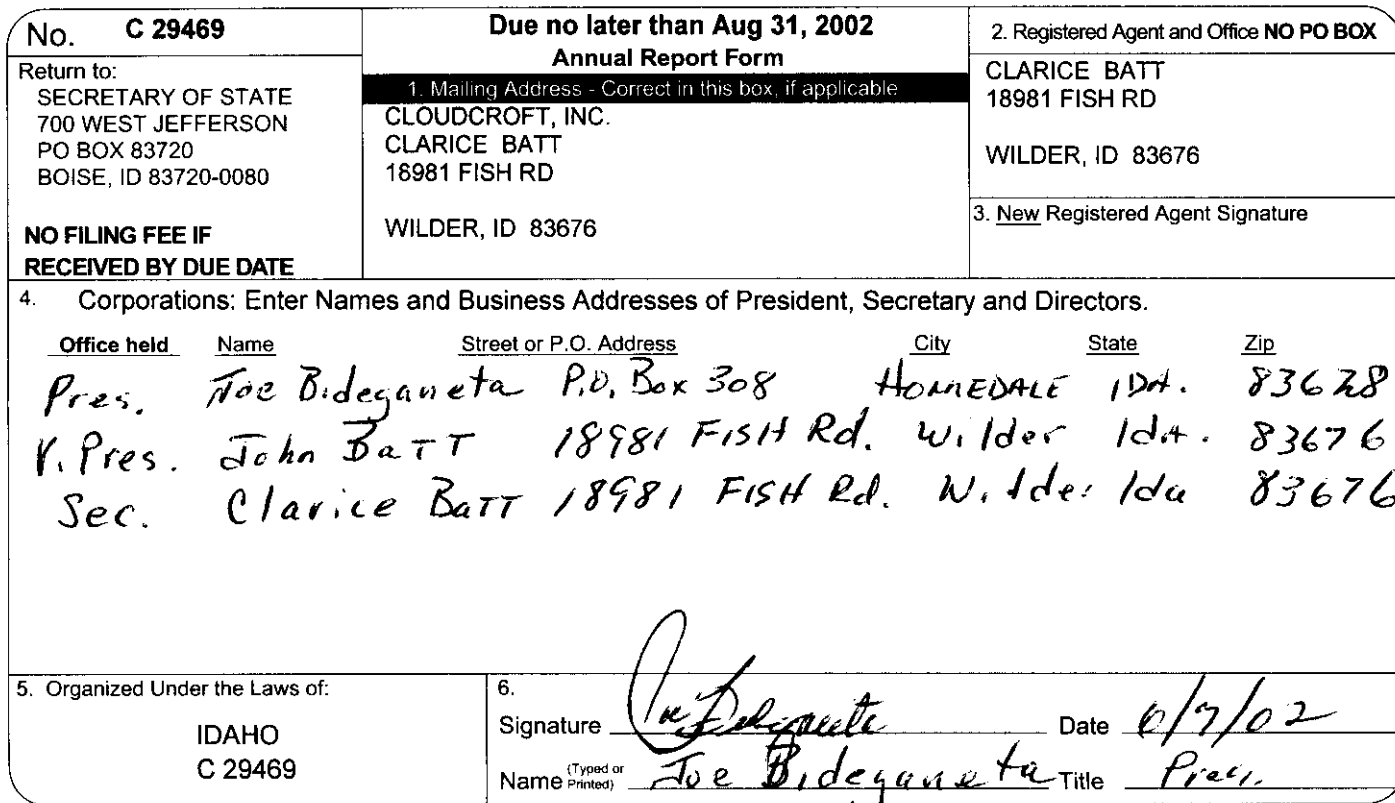 No. C 29469
Return to:
SECRETARY OF STATE
700 WEST JEFFERSON
PO BOX 83720
BOISE, ID 83720-0080
NO FILING FEE IF
RECEIVED BY DUE DATE
Due no later than Aug 31, 2002
Annual Report Form
1. Mailing Address - Correct in this box, if applicable
CLOUDCROFT, INC.
CLARICE BATT
18981 FISH RD
WILDER, ID 83676
2. Registered Agent and Office NO PO BOX
CLARICE BATT
18981 FISH RD
WILDER, ID 83676
3. New Registered Agent Signature
4. Corporations: Enter Names and Business Addresses of President, Secretary and Directors.
Office held Name Street or P.O. Address City State Zip
Pres. Joe Bideganeta P.O. Box 308 HOMEDALE IDA. 83628
V. Pres. John BaTT 18981 FISH Rd. Wilder IdA. 83676
Sec. Clarice BaTT 18981 FISH Rd. Wilder Ida 83676
5. Organized Under the Laws of:
IDAHO
C 29469
6.
Signature Joe Bideganeta Date 6/7/02
Name (Typed or Printed) Joe Bideganeta Title Pres.